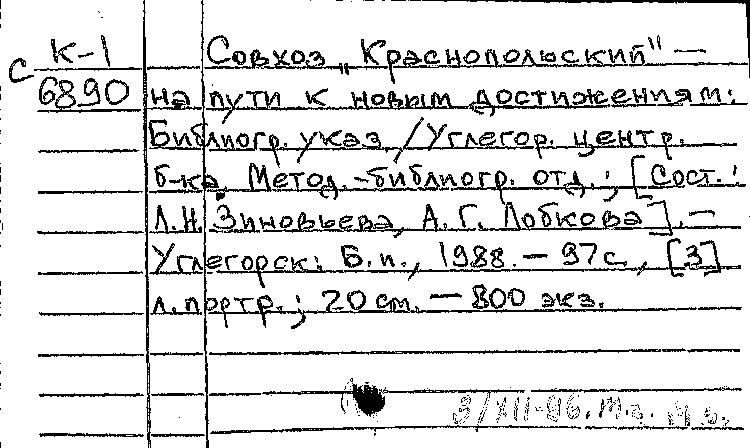 К-1
С
6890
Совхоз „Краснопольский" —
на пути к новым достижениям:
Библиогр. указ. / Углегор. центр.
б-ка. Метод.-библиогр. отд.; [Сост.:
Л.Н. Зиновьева, А. Г. Лобкова]. —
Углегорск: Б.и., 1988. — 97 с., [3]
л. портр.; 20 см. — 800 экз.
3/XII-86.